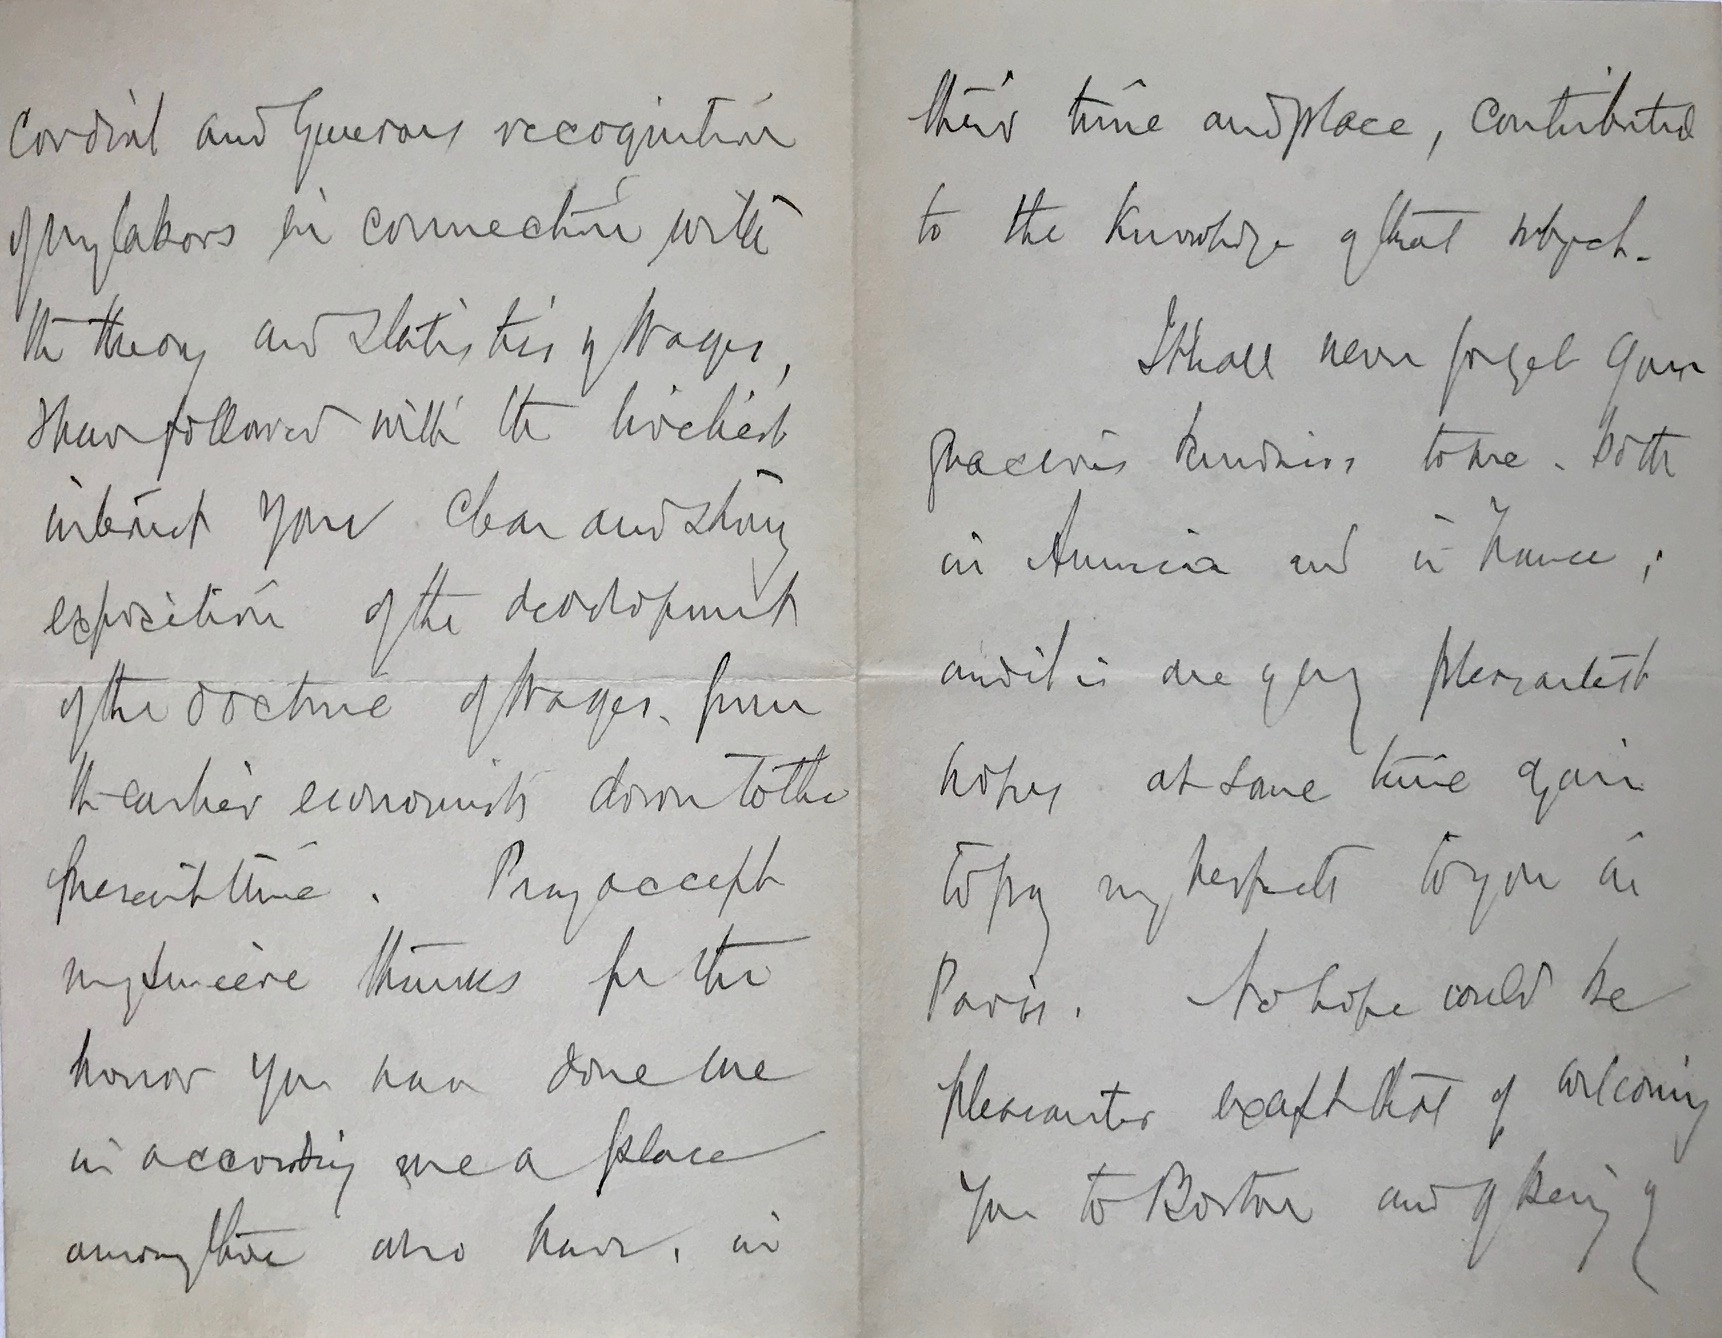 cordial and generous recognition
of my labors in connection with
the theory and statistics of Wages,
I have followed with the liveliest
interest your clear and strong
exposition of the development
of the doctrine of Wages, from
the earlier economists down to the
present time. Pray accept
my sincere thanks for the
honor you have done me
in according me a place
among those who have, in
their time and place, contributed
to the knowledge of that subject.
I shall never forget your
gracious kindness to me, both
in America and in France;
and it is one of my pleasantest
hopes at some time again
to pay my respects to you in
Paris. No hope could be
pleasanter except that of welcoming
you to Boston and of being of